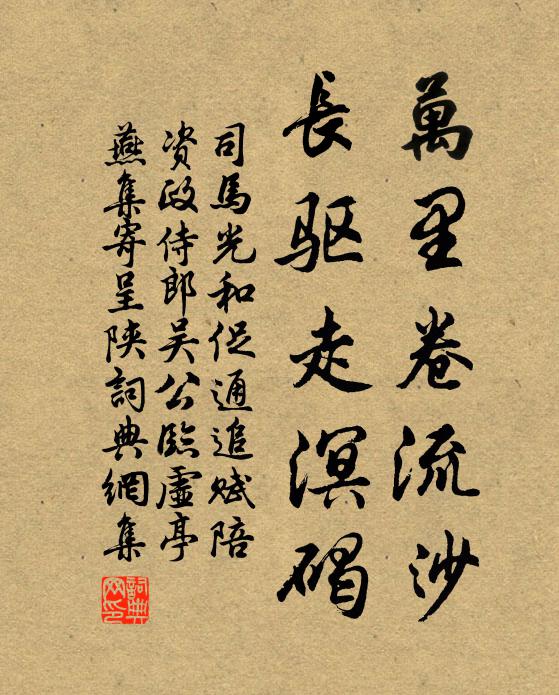 萬里卷流沙
長驱走溟碣
司馬光和促通追赋陪
资政侍郎吴公臨虛亭
燕集寄呈陝詞典網集
詞典网印